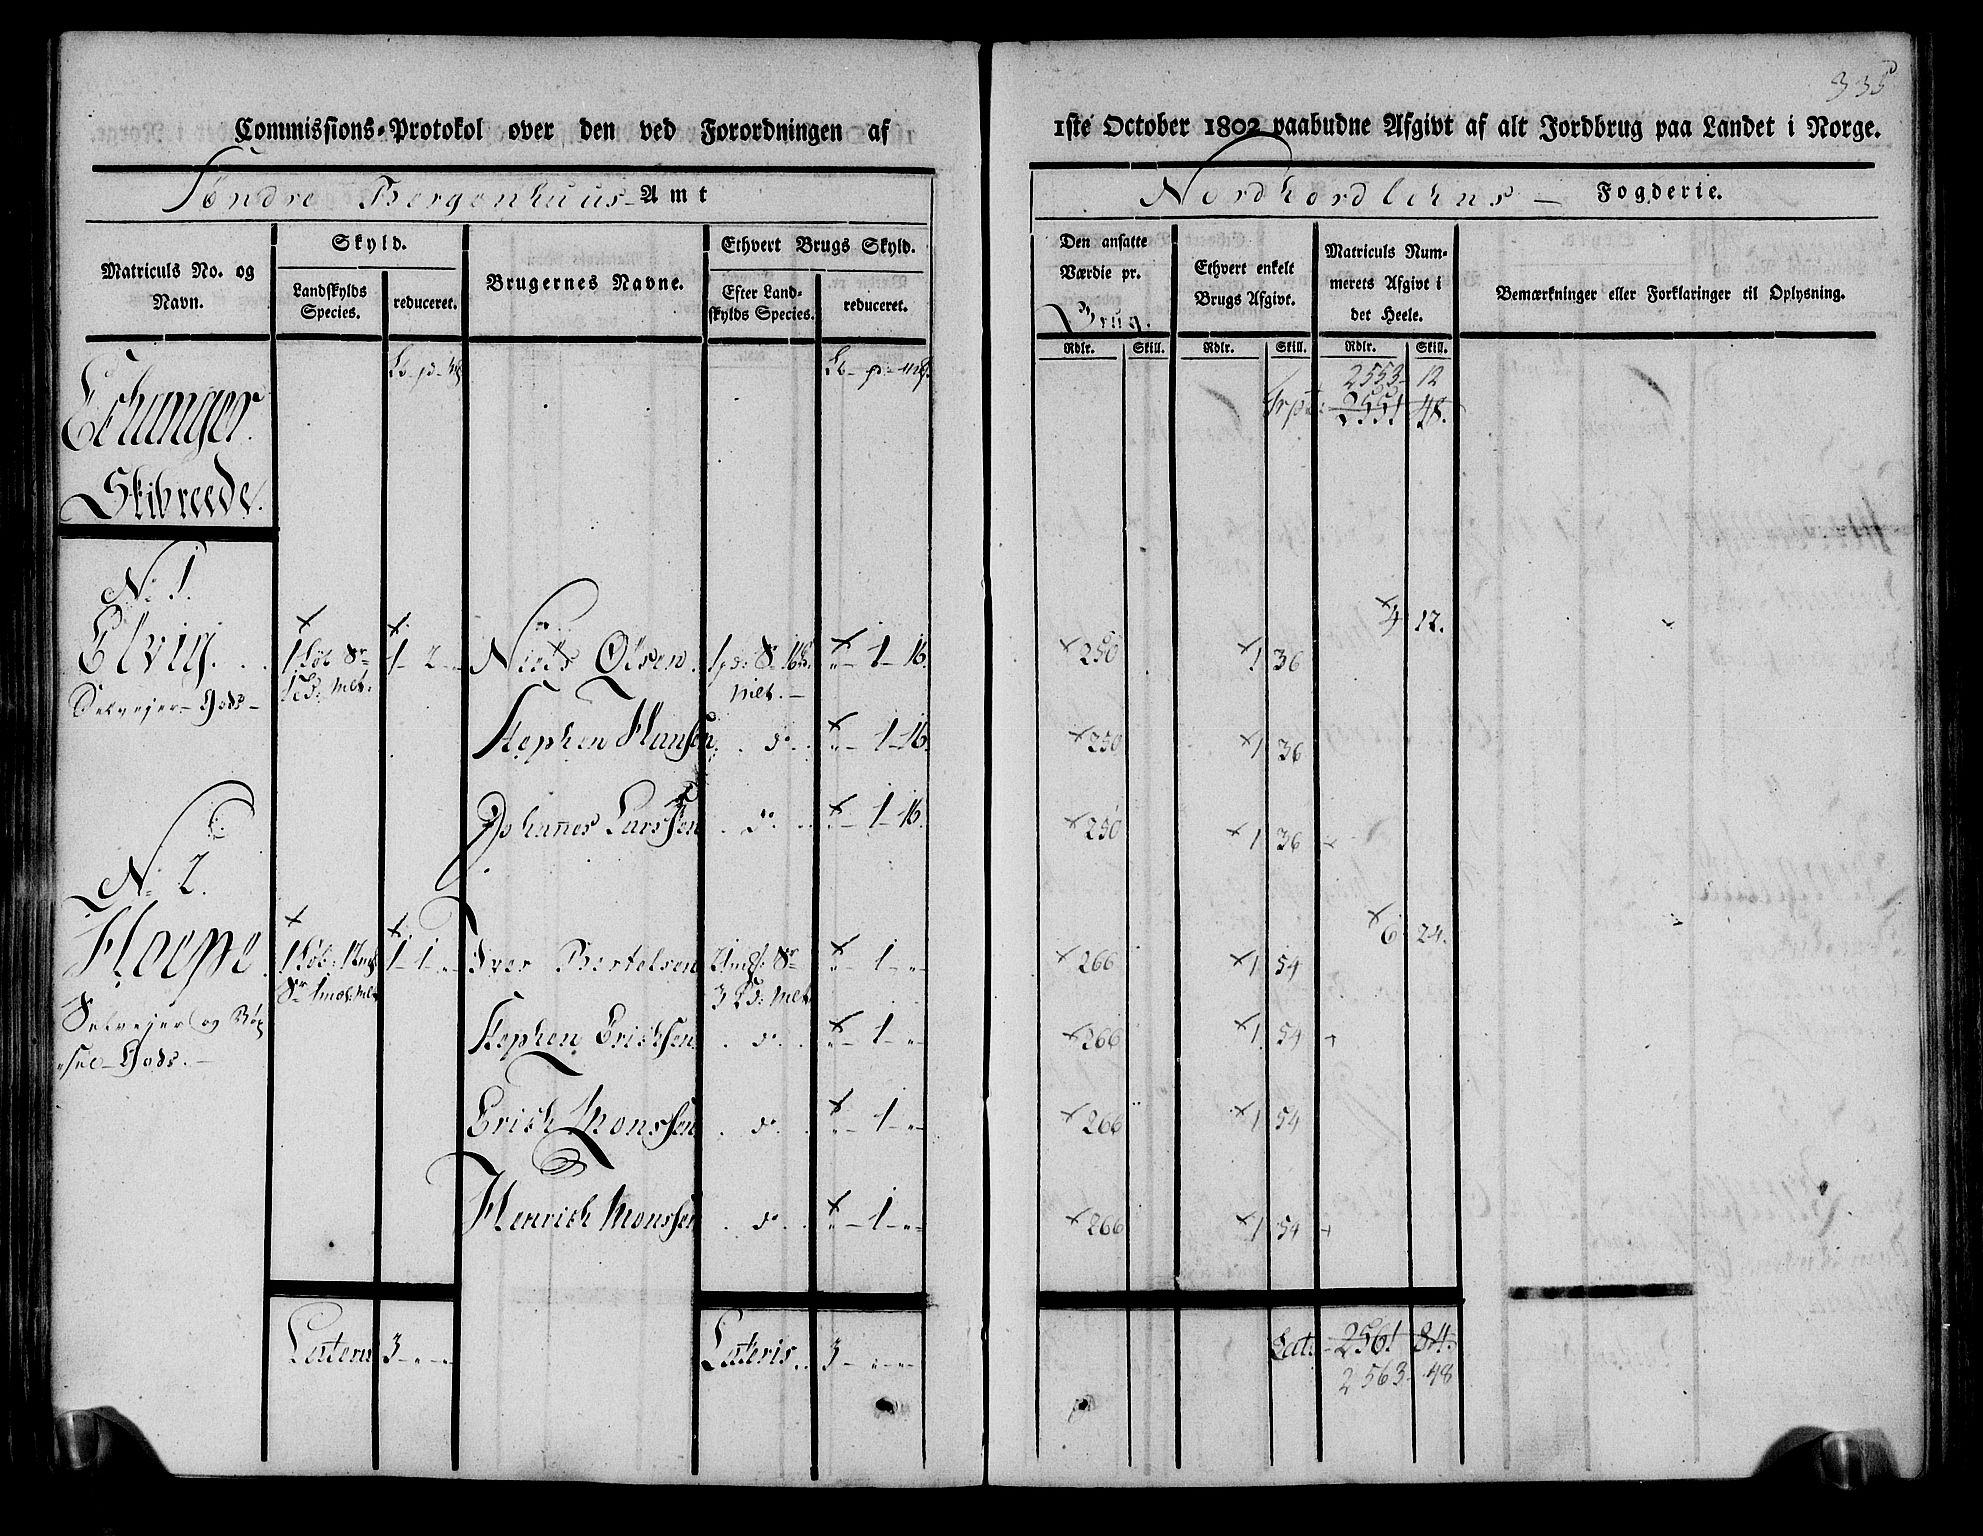 335
Commissions-Protokol over den ved Forordningen af 1ste October 1802 paabudne Afgivt af alt Jordbrug paa Landet i Norge.
Søndre Bergenhuus Amt Nordhordlehns Fogderie.
Matriculs No. og Navn.
Skyld.
Landskylds Species.
reduceret.
Brugernes Navne.
Ethvert Brugs Skyld.
Efter Landskylds Species.
reduceret.
Den ansatte Værdie pr. Brug.
Ethvert enkelt Brugs Afgivt.
Matriculs Nummerets Afgivt i det Heele.
Bemærkninger eller Forklaringer til Oplysning.
Rdlr. Skill. Rdlr. Skill. Rdlr. Skill.
2553 12
Trpt: 2551 48.
Echanger
Skibreede.
No 1.
4 12.
Elvig. 1 Løb Sr 1 - 2 - Niels Olsen 1 pd: S 16 " - 1 - 16. 250 1 36
Selvejer-Gods
Stephen Hansen do " - 1 - 16. 250 1 36
Johannes Larssen do " - 1 - 16. 250 1 36
No 2.
6 24.
Hoepe 1 Løb: 1 - 1 - " Iver Bertelsen " - 1 - " 266 1 54
Selvejer og
Gods.
Stephen Erichsen do " - 1 - " 266 1 54
Erich Monssen do " - 1 - " 266 1 54
Henrich Monssen do " - 1 - " 266 1 54
Lateris 3 - " - " Lateris 3 - " - " Lat: 2561 84.
2563 48